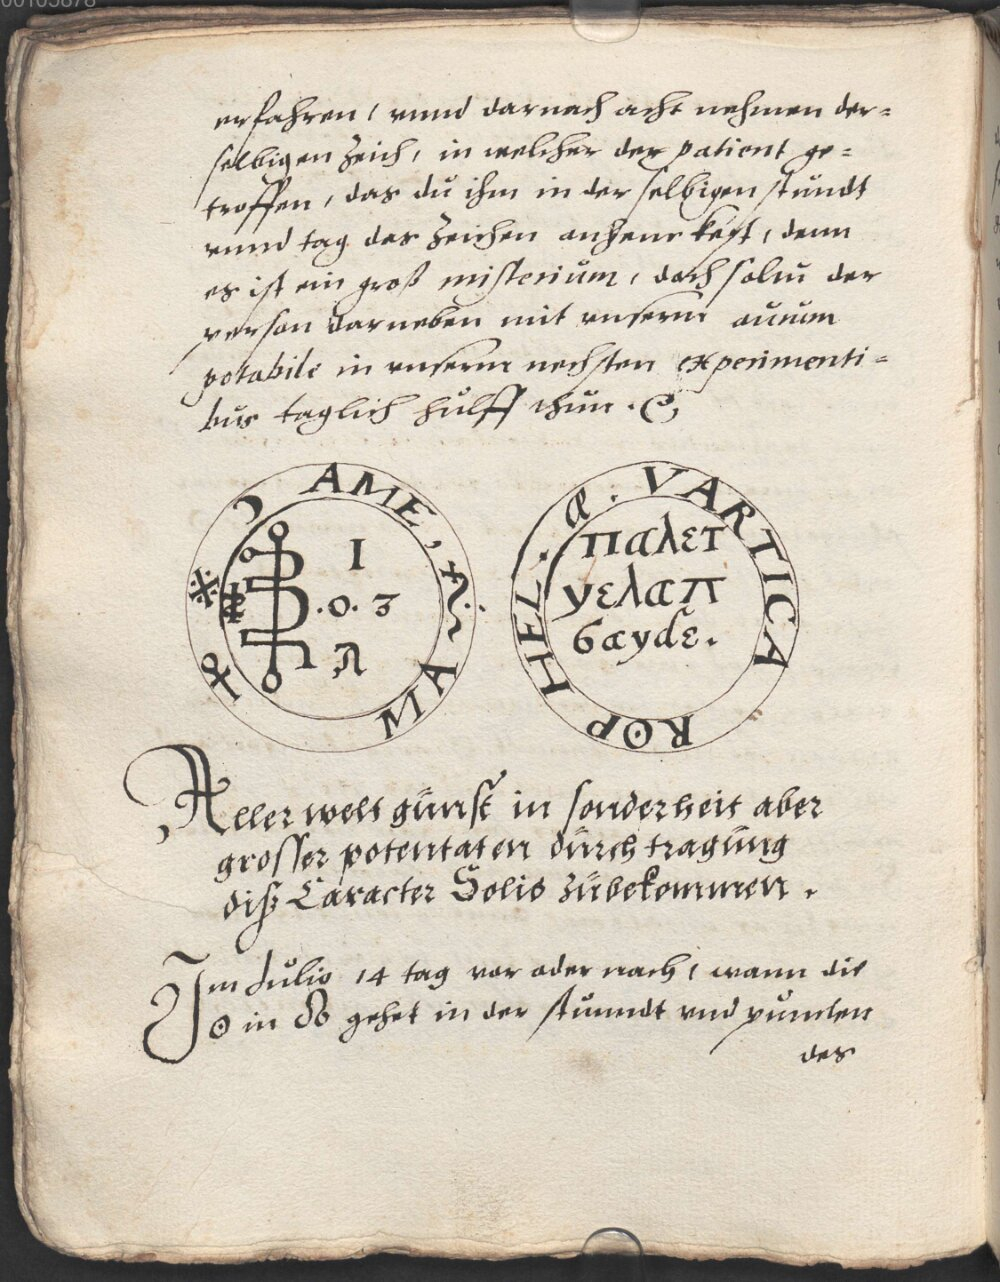 00105878
erfahren / vnnd darnach acht nehmen der=
selbigen Zeich, in welcher der patient ge=
troffen, das du ihm in der selbigen stundt
vnnd tag des Zeichen anhenckest, denn
es ist ein groß misterium, doch soltu der
person darneben mit vnserm aurum
potabile in vnserm nechsten experimenti=
bus taglich hülff thun.
AME,
MA
I
.0.3
Æ. VARTICA
ROP HEL.
παλετ
γελαπ
δαγδε.
Aller welt günst in sonderheit aber
grosser potentaten dürch tragüng
diß Caracter Solis zübekommen.
Im Julio 14 tag vor oder nach, wann die
☉ in gehet in der stunndt vnd puncten
des